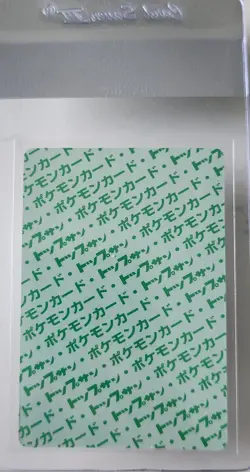 Card Saver II
ポケモンカード・
ポケモンカード・トップサン
トップサン・ポケモンカード・
ポケモンカード・トップサン
ド・トップサン・ポケモンカード
ポケモンカード・トップサン
トップサン・ポケモンカード
ポケモンカード・トップサン
トップサン・ポケモンカード
ポケモンカード・トップサン
トップサン